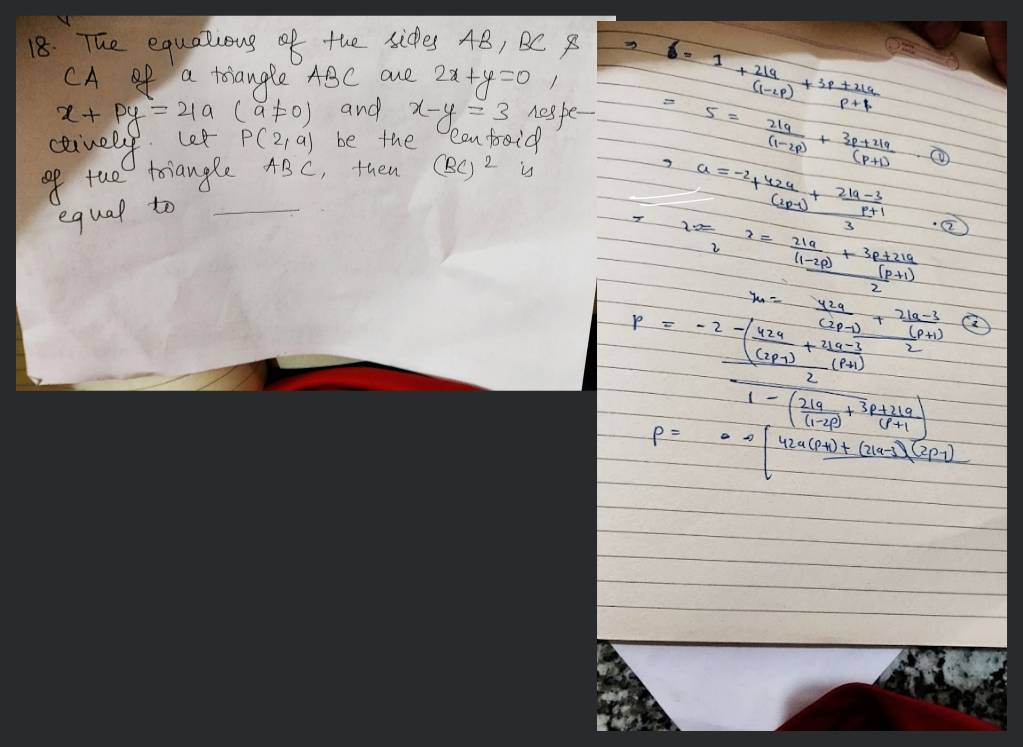 18. The equations of the sides AB, BC &
CA of a triangle ABC are 2x+y=0,
x+Py=21a (a≠0) and x-y=3 respe-
ctively. Let P(2,a) be the Centroid
of the triangle ABC, then (BC)² is
equal to ______.
⇒ 6 = 1 + 21a/(1-2p) + 3p+21a/p+1
= 5 = 21a/(1-2p) + 3p+21a/(p+1) . ①
⇒ a = -2 + 42a/(2p-1) + 21a-3/p+1 / 3 . ②
2 = 21a/(1-2p) + 3p+21a/(p+1) / 2
42a/(2p-1) + 21a-3/(p+1) / 2 ②
P = -2 - (42a/(2p-1) + 21a-3/(p+1)) / 2
1 - (21a/(1-2p) + 3p+21a/(p+1
P = [42a(p+1) + (21a-3)(2p-1)